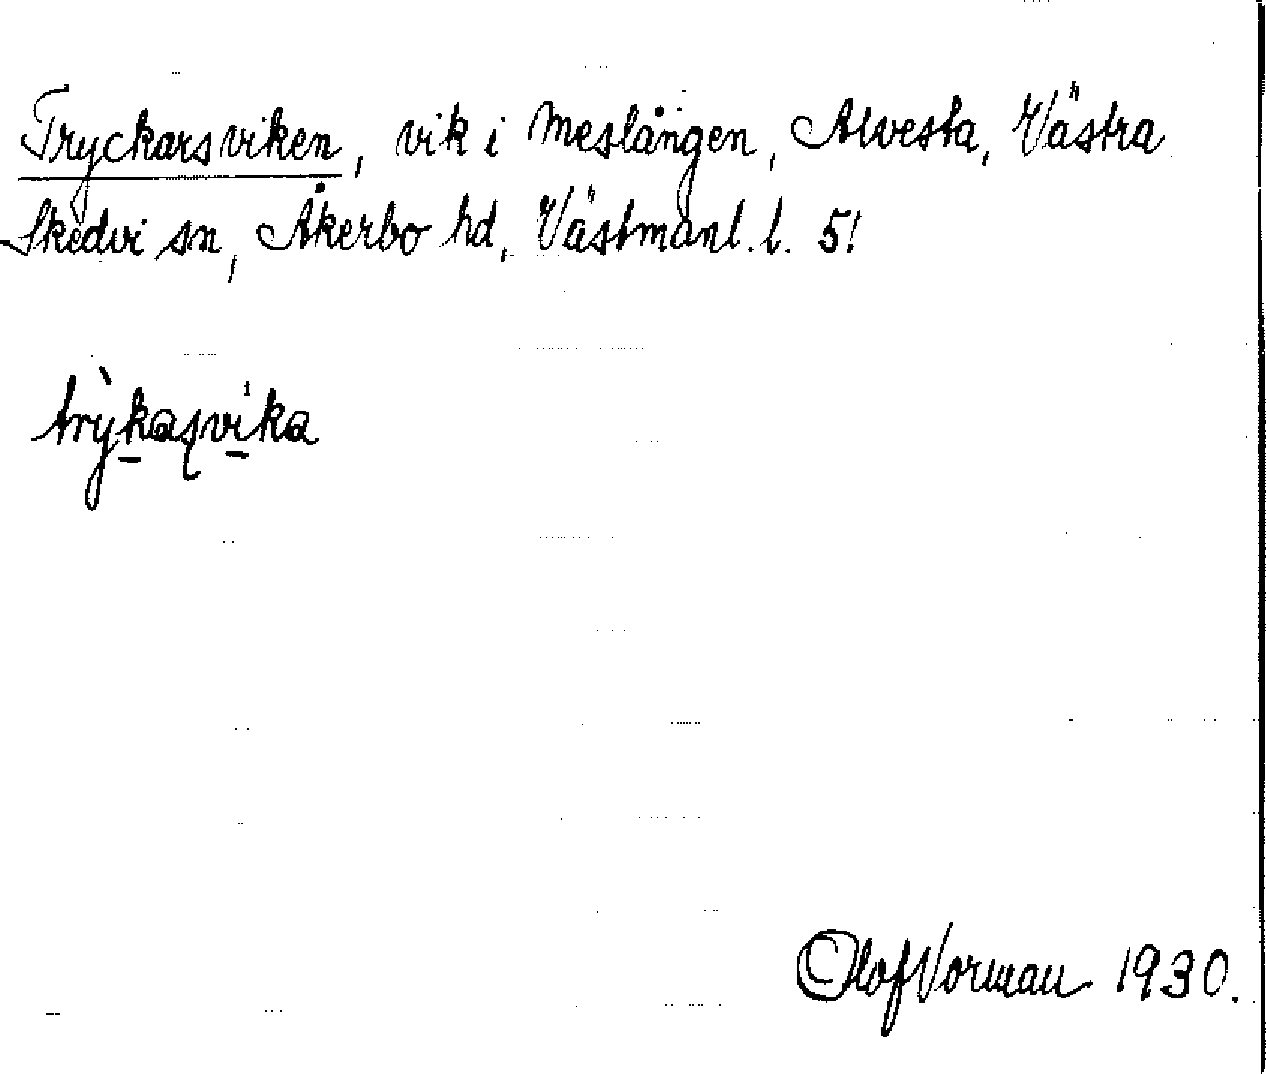 Tryckarsviken, vik i Meslången, Alvesta, Västra
Skedvi sn, Åkerbo hd, Västmanl. l. 5!
trỳkasvika
Olof Vorman 1930.